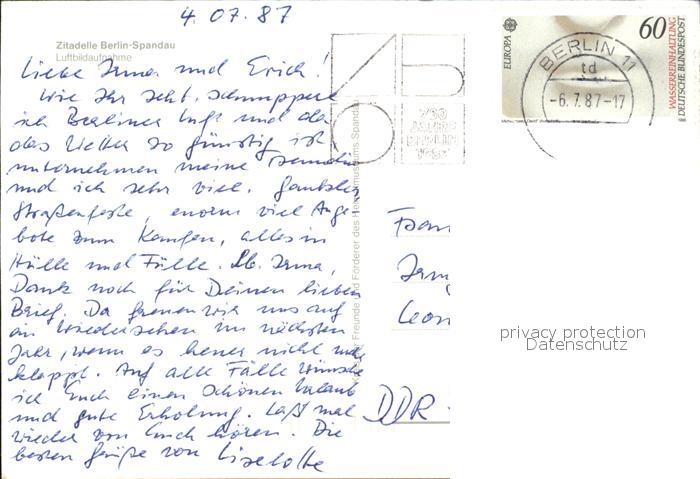 4.07.87
Zitadelle Berlin-Spandau
Luftbildaufnahme
Liebe Irma und Erich!
Wie Ihr seht, schnuppere
ich Berliner Luft und da
das Wetter so günstig ist
unternehmen meine
und ich sehr viel.
Straßenfeste, enorm viel Ange-
bote zum Kaufen, alles in
Hülle und Fülle. Lb. Irma,
Dank noch für Deinen lieben
Brief. Da freuen wir uns auf
ein Wiedersehen im nächsten
Jahr, wenn es heuer nicht mehr
klappt. Auf alle Fälle wünsche
ich Euch einen schönen Urlaub
und gute Erholung. Laßt mal
wieder von Euch hören. Die
besten Grüße von Liselotte
Freunde und Förderer des Heimatmuseums Spandau
750
JAHRE
BERLIN
1987
EUROPA
60
WASSERREINHALTUNG
DEUTSCHE BUNDESPOST
BERLIN 11
td
-6.7.87-17
DDR -
privacy protection
Datenschutz